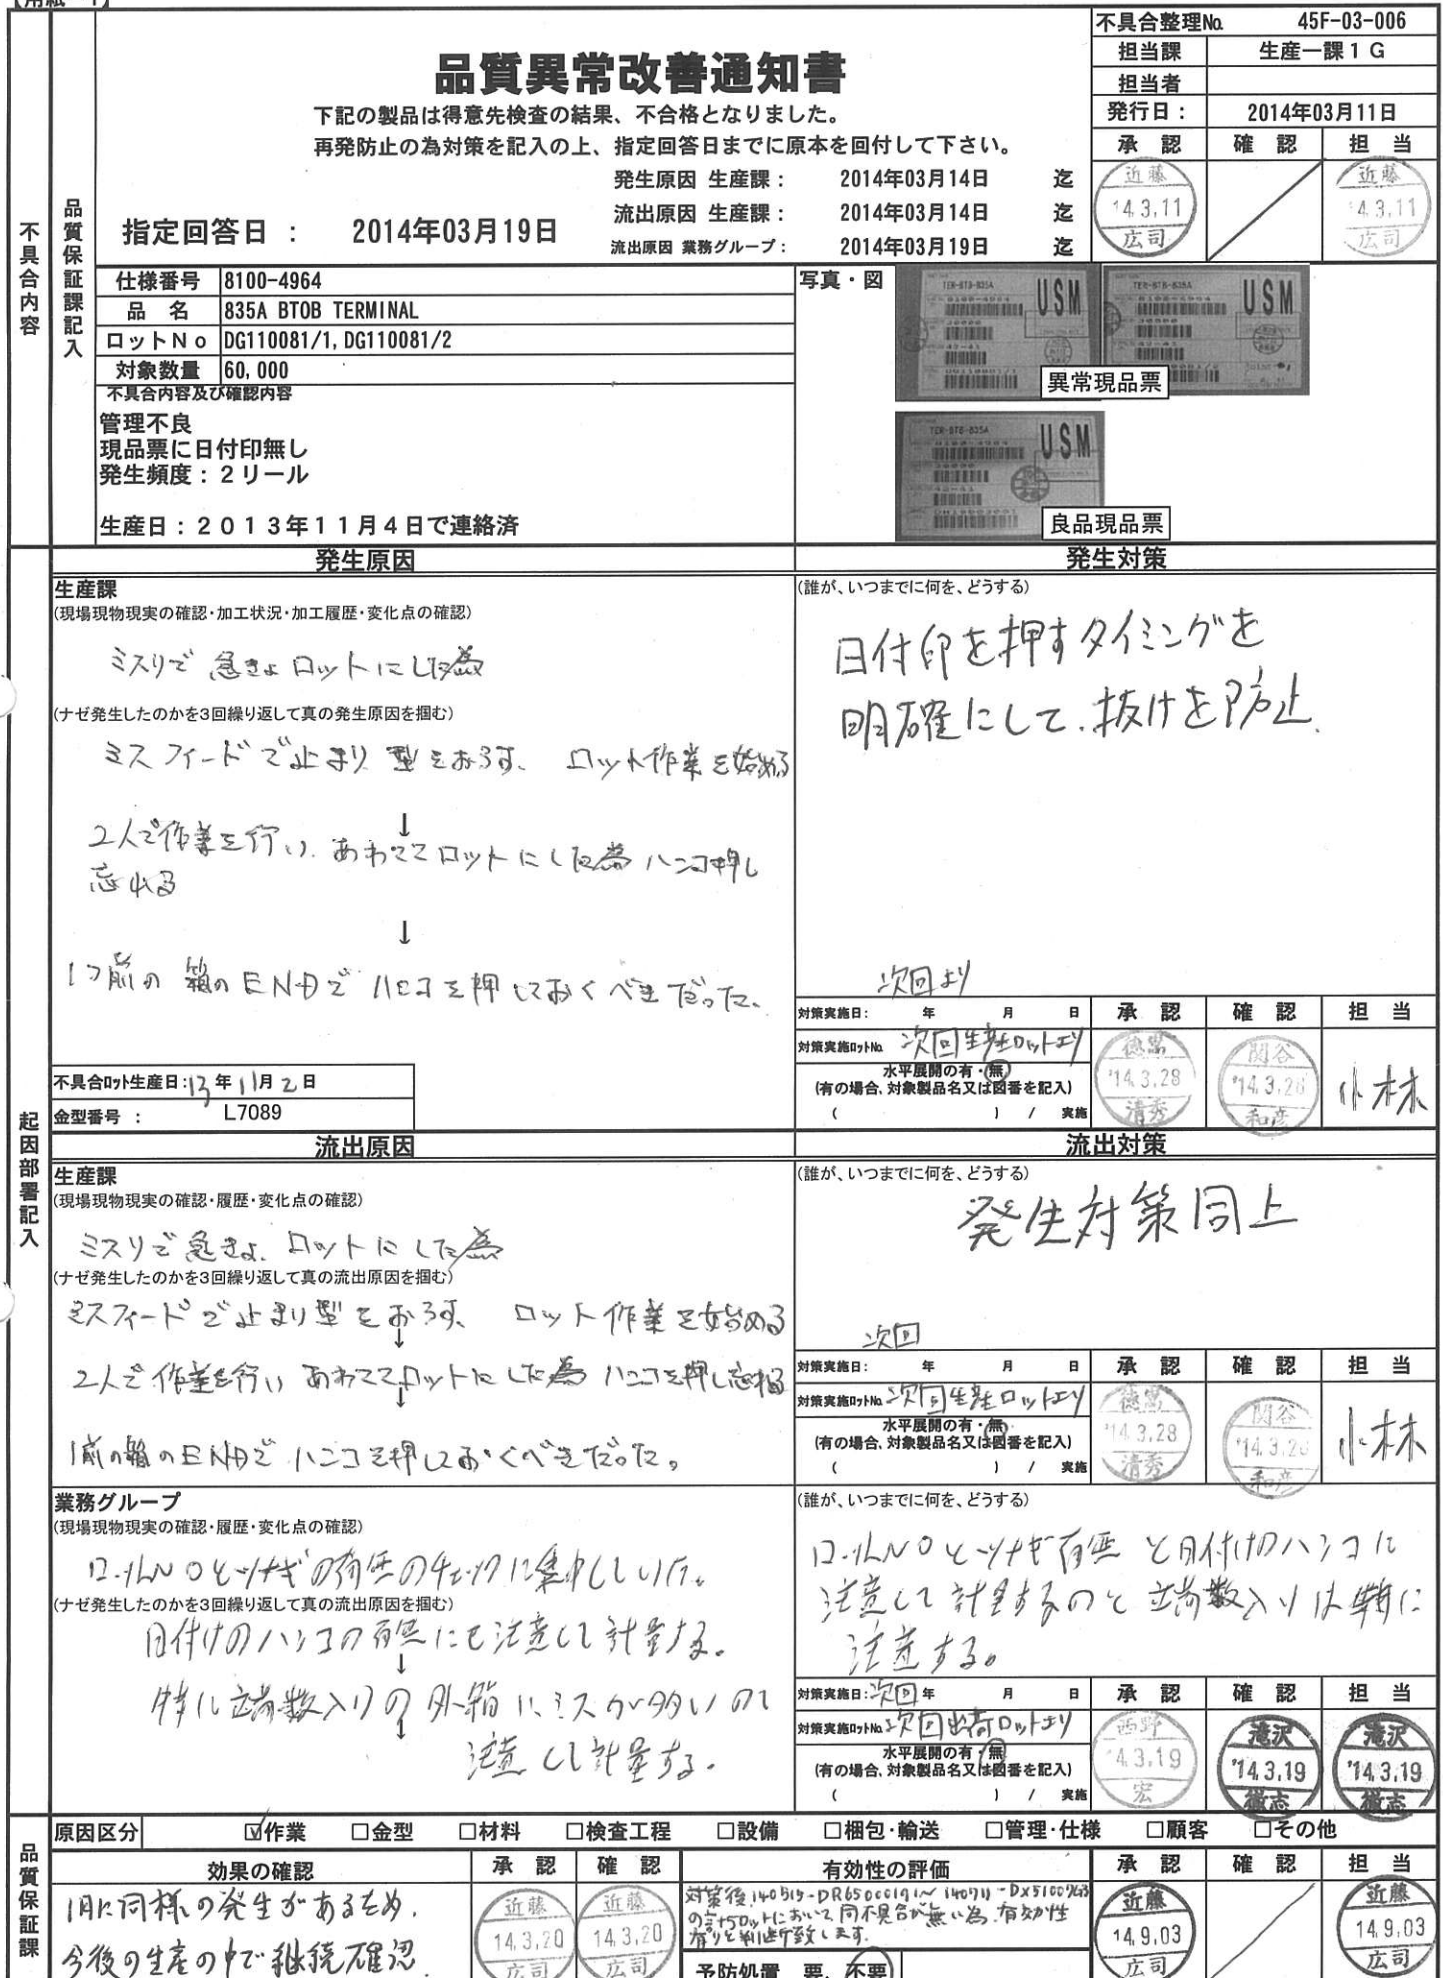 【用紙－1】
不具合整理№ 45F-03-006
担当課 生産一課1G
担当者
発行日： 2014年03月11日
承認 確認 担当
近藤 '14.3.11 広司
近藤 '14.3.11 広司
品質異常改善通知書
下記の製品は得意先検査の結果、不合格となりました。
再発防止の為対策を記入の上、指定回答日までに原本を回付して下さい。
発生原因 生産課： 2014年03月14日 迄
流出原因 生産課： 2014年03月14日 迄
流出原因 業務グループ： 2014年03月19日 迄
指定回答日 ： 2014年03月19日
不具合内容
品質保証課記入
仕様番号 8100-4964
品名 835A BTOB TERMINAL
ロットNo DG110081/1,DG110081/2
対象数量 60,000
不具合内容及び確認内容
管理不良
現品票に日付印無し
発生頻度：2リール
生産日：2013年11月4日で連絡済
写真・図
TER-BTB-835A USM
TER-BTB-835A USM
異常現品票
TER-BTB-835A USM
良品現品票
起因部署記入
発生原因
生産課
(現場現物現実の確認・加工状況・加工履歴・変化点の確認)
ミスリで 急きょ ロットにした為
(ナゼ発生したのかを3回繰り返して真の発生原因を掴む)
ミスフィードで止まり 型をおろす、 ロット作業を始める
↓
2人で作業を行い、あわててロットにした為 ハンコ押し
忘れる
↓
1つ前の 箱のENDで ハンコを押しておくべきだった。
不具合ロット生産日：13年11月2日
金型番号 ： L7089
発生対策
(誰が、いつまでに何を、どうする)
日付印を押すタイミングを
明確にして、抜けを防止.
次回より
対策実施日： 年 月 日
対策実施ロット№ 次回生産ロットより
水平展開の有・無
(有の場合、対象製品名又は図番を記入)
( ) / 実施
承認 確認 担当
徳嵩 '14.3.28 清秀
関谷 '14.3.28 和彦
小林
流出原因
生産課
(現場現物現実の確認・履歴・変化点の確認)
ミスリで 急きょ、ロットにした為
(ナゼ発生したのかを3回繰り返して真の流出原因を掴む)
ミスフィードで止まり型をおろす、 ロット作業を始める
↓
2人で作業を行い あわててロットにした為 ハンコを押し忘れる
↓
1前の箱のENDで ハンコを押しておくべきだった。
流出対策
(誰が、いつまでに何を、どうする)
発生対策同上
次回
対策実施日： 年 月 日
対策実施ロット№ 次回生産ロットより
水平展開の有・無
(有の場合、対象製品名又は図番を記入)
( ) / 実施
承認 確認 担当
徳嵩 '14.3.28 清秀
関谷 '14.3.28 和彦
小林
業務グループ
(現場現物現実の確認・履歴・変化点の確認)
ロールNOとツナギの有無のチェックに集中していた。
(ナゼ発生したのかを3回繰り返して真の流出原因を掴む)
日付けのハンコの有無にも注意して計量する。
↓
特に端数入りの外箱にミスが多いので
↓
注意して計量する。
(誰が、いつまでに何を、どうする)
ロールNOとツナギ有無と日付けのハンコに
注意して計量するのと端数入りは特に
注意する。
対策実施日：次回 年 月 日
対策実施ロット№ 次回出荷ロットより
水平展開の有・無
(有の場合、対象製品名又は図番を記入)
( ) / 実施
承認 確認 担当
西野 '14.3.19 宏
滝沢 '14.3.19 徹志
滝沢 '14.3.19 徹志
品質保証課
原因区分 ☑作業 □金型 □材料 □検査工程 □設備 □梱包・輸送 □管理・仕様 □顧客 □その他
効果の確認
1月に同様の発生があるため、
今後の生産の中で継続確認
承認 確認
近藤 14.3.20 広司
近藤 14.3.20 広司
有効性の評価
において同不具合が無い為、有効性
有りと判断致します。
予防処置 要、不要
承認 確認 担当
近藤 '14.9.03 広司
近藤 '14.9.03 広司